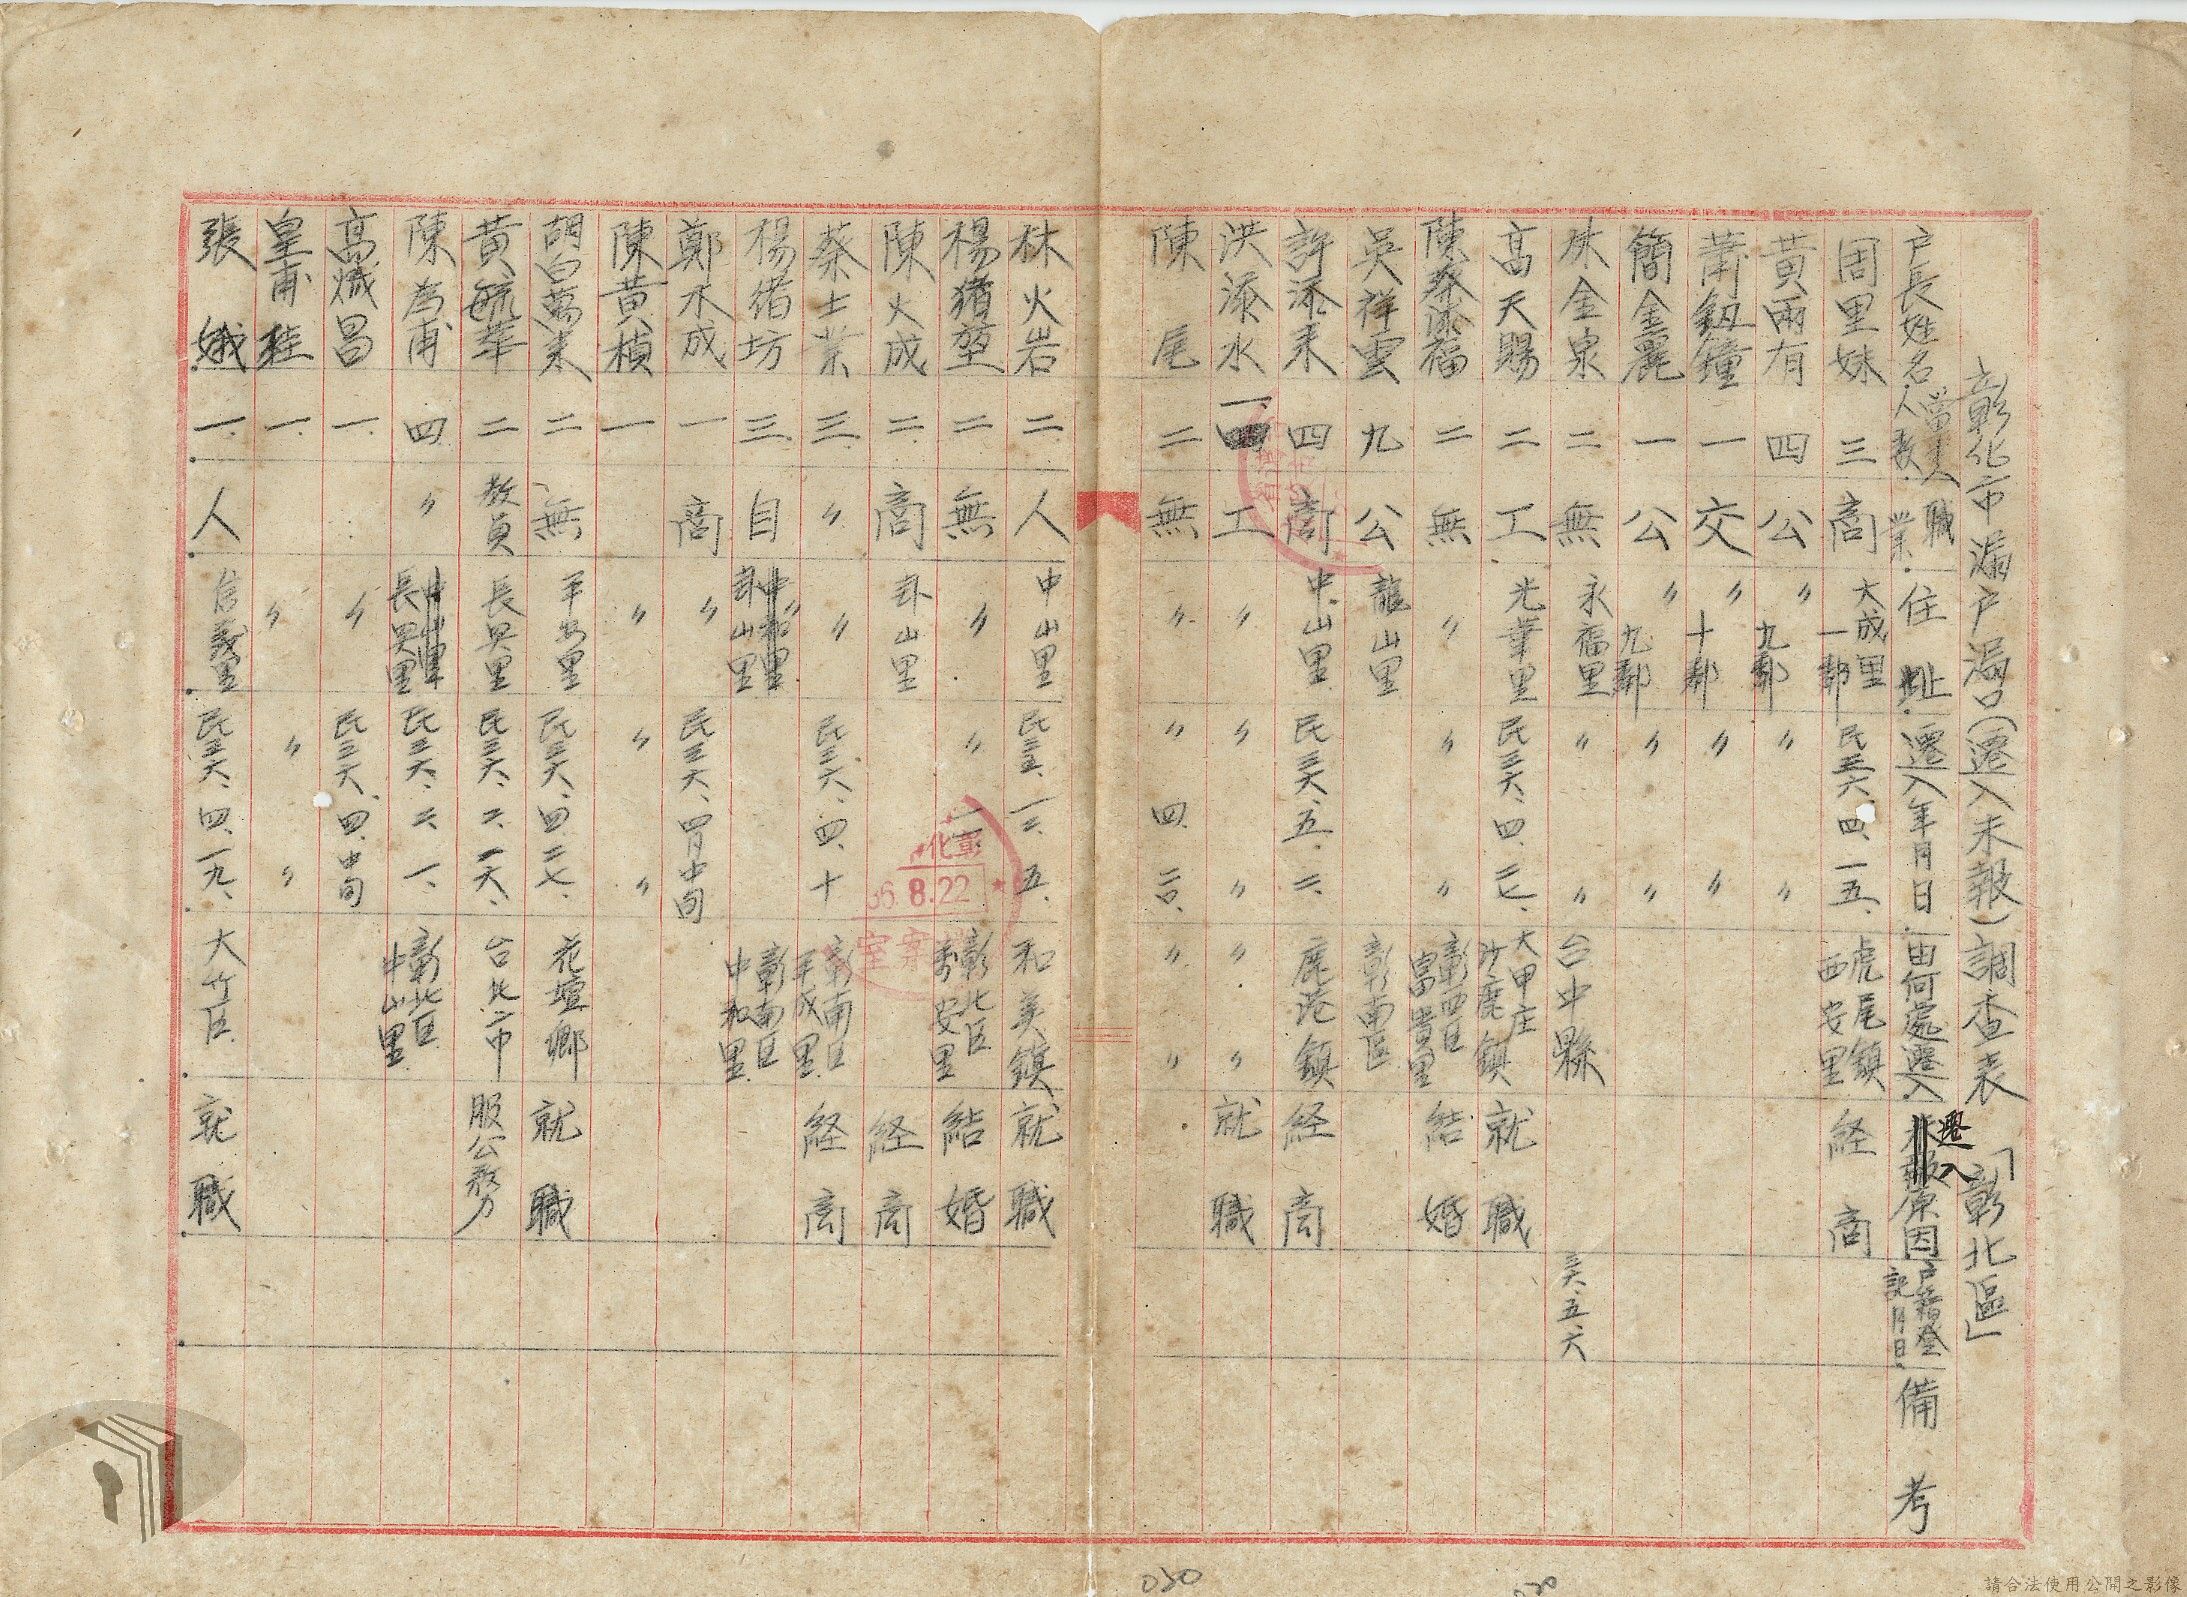 彰化市漏戶漏口（遷入未報）調查表「彰北區」
戶長姓名 當人人數 職業 住址 遷入年月日 由何處遷入 遷入原因 戶籍登記月日 備考
周里妹 三 商 大成里一鄰 民三六、四、一五、 虎尾鎮西安里 経商
黃兩有 四 公 〃九鄰 〃 〃
蕭鈕鐘 一 交 〃十鄰 〃 〃
簡金麗 一 公 〃九鄰 〃 〃
林金泉 二 無 永福里 〃 〃 台中縣 三六、五、六
高天賜 二 工 光華里 民三六、四、二七、 大甲庄沙鹿鎮 就職
陳蔡添福 二 無 〃 〃 〃 彰西区富貴里 結婚
吳祥雲 九 公 龍山里 彰南區
許添來 四 商 中山里 民三六、五、二、 鹿港鎮 経商
洪添水 一 工 〃 〃 〃 〃 〃 就職
陳尾 二 無 〃 〃 四、二〇、 〃 〃
林火岩 二 人 中山里 民三五、一二、五、 和美鎮 就職
楊猪堃 二 無 〃 〃 彰北区安里 結婚
陳火成 二 商 卦山里 経商
蔡土業 三 〃 〃 民三六、四、十 彰南区平成里 経商
楊猪坊 三 自 卦山里 彰南区中和里
鄭木成 一 商 〃 民三六、四月中旬
陳黃楨 一 〃 〃 〃
胡白萬來 二 無 平安里 民三六、四、二七、 花壇鄉 就職
黃毓華 二 教員 長興里 民三六、二、一六、 台北市 服公務
陳為甫 四 〃 長興里 民三六、二、一、 彰北区中山里
高熾昌 一 〃 民三六、四、中旬
皇甫桂 一 〃 〃 〃
張娥 一 人 信義里 民三六、四、一九、 大竹区 就職
彰化
36.8.22
檔案室
030
請合法使用公開之影像